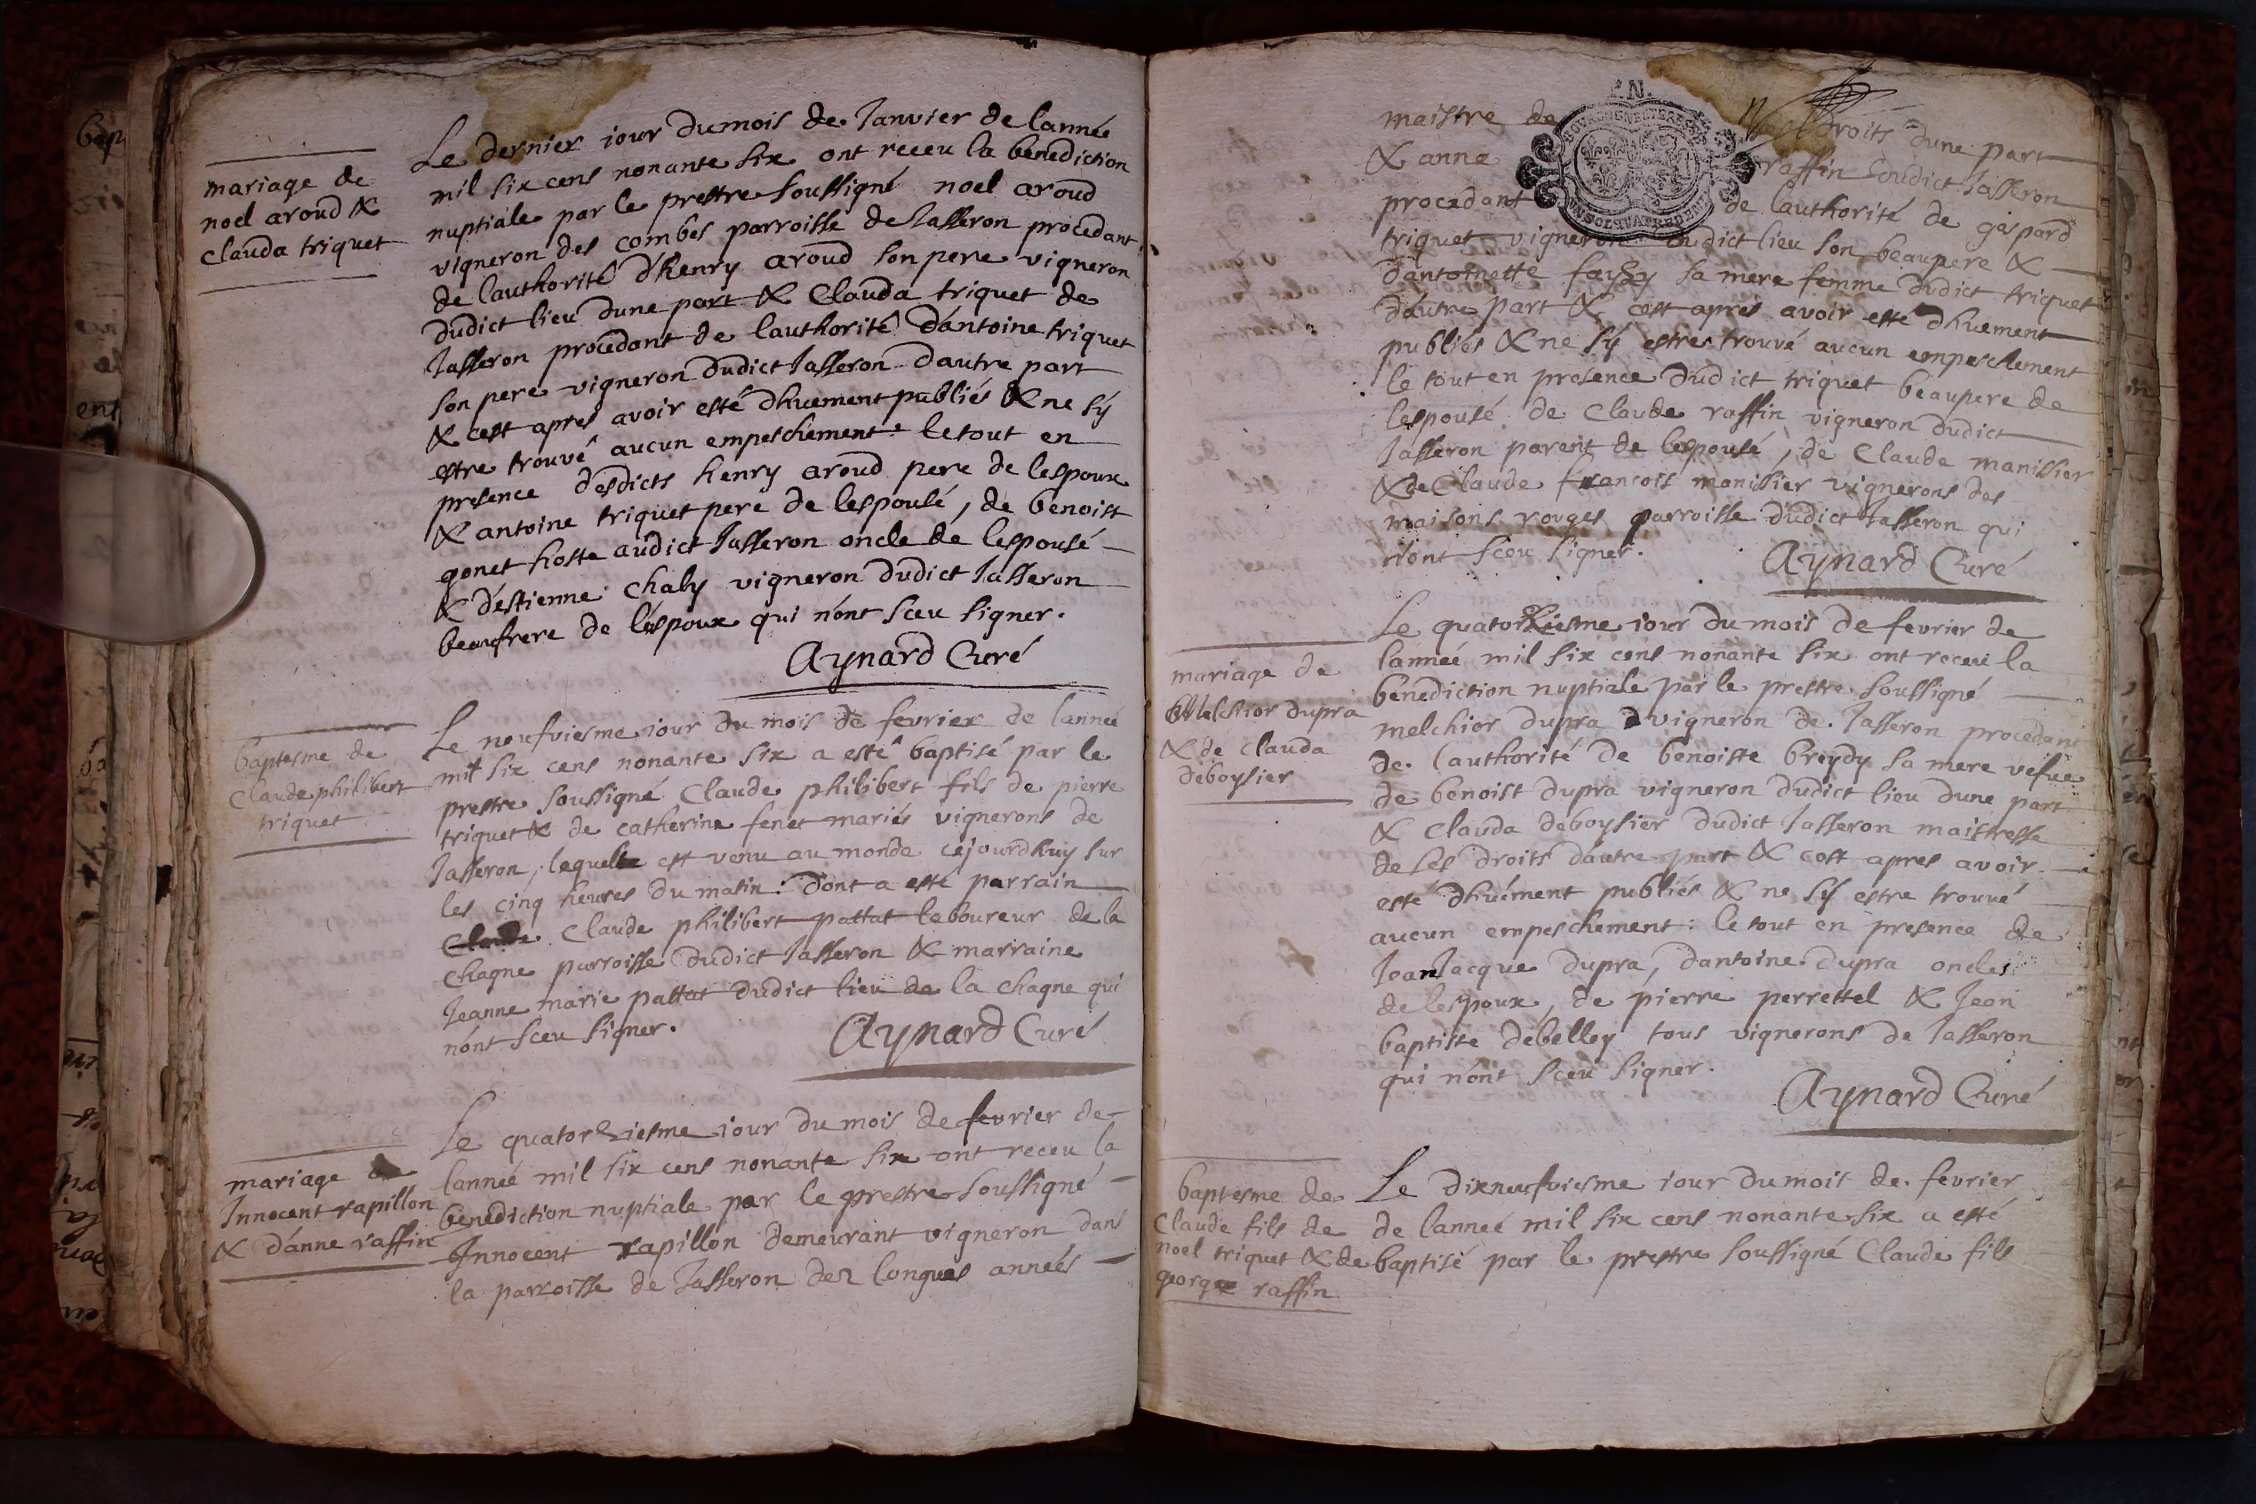 mariage de
noel aroud &
clauda triquet
Le dernier iour du mois de Janvier de lannée
mil six cens nonante six ont receu la benediction
nuptiale par le prestre soussigné noel aroud
vigneron des combes parroisse de Jasseron procedant
de lauthorité d'henry aroud son pere vigneron
dudict lieu dune part & Clauda triquet de
Jasseron procedant de lauthorité d'antoine triquet
son pere vigneron dudict Jasseron dautre part
& cest apres avoir esté dhuement publiés & ne sÿ
estre trouvé aucun empeschement: le tout en
presence desdicts henry aroud pere de lespoux
& antoine triquet pere de lespousé, de benoist
gonet hoste audict Jasseron oncle de lespousé
& d'estienne chaby vigneron dudict Jasseron
beaufrere de l'éspoux qui n'ont sceu signer.
Aynard Curé
baptesme de
Claude philibert
triquet
Le neufviesme iour du mois de fevrier de lanneé
mil six cens nonante six a esté baptisé par le
prestre soussigné Claude philibert fils de pierre
triquet & de catherine fenet mariés vignerons de
Jasseron, lequel est venu au monde cejourdhuy sur
les cinq heures du matin: dont a esté parrain
Claude Claude philibert pattat laboureur de la
chagne parroisse dudict Jasseron & marraine
Jeanne marie pattat dudict lieu de la chagne qui
n'ont sceu signer.
Aynard Curé
mariage d
Innocent rapillon
& d'anne raffin
Le quatorziesme iour du mois de fevrier de
lanneé mil six cens nonante six ont receu la
benediction nuptiale par le prestre soussigné
Innocent rapillon demeurant vigneron dans
la parroisse de Jasseron dez longues anneés
maistre de droits dune part
& anne raffin dudict Jasseron
procedant de lauthorité de gaspard
triquet vigneron dudict lieu son beaupere &
d'antoinette sa mere femme dudict tricquet
d'autre part & cest aprés avoir esté dhuement
publiés & ne sÿ estre trouvé aucun empeschement
le tout en presence dudict triquet beaupere de
lespousé de Claude raffin vigneron dudict
Jasseron parent de lespousé, de Claude manissier
& de Claude francois monissier vignerons des
maisons rouges parroisse dudict Jasseron qui
n'ont sceu signer.
Aynard Curé
mariage de
Melchior dupra
& de clauda
deboysier
Le quatorziesme iour du mois de fevrier de
lanneé mil six cens nonante six ont receu la
benediction nuptiale par le prestre soussigné
melchior dupra vigneron de Jasseron procedant
de lauthorité de benoiste breydy sa mere vefue
de benoist dupra vigneron dudict lieu dune part
& Clauda deboysier dudict Jasseron maistresse
de ses droits d'autre part & cest apres avoir
esté dhuément publiés & ne sÿ estre trouvé
aucun empeschement: le tout en presence de
Jean Jacque dupra, dantoine dupra oncles
de lespoux, de pierre perrettel & Jean
baptiste debelley tous vignerons de Jasseron
qui n'ont sceu signer.
Aynard Curé
baptesme de
Claude fils de
noel triquet & de
george raffin
Le dixneufviesme iour du mois de fevrier
de lanneé mil six cens nonante six a esté
baptisé par le prestre soussigné Claude fils